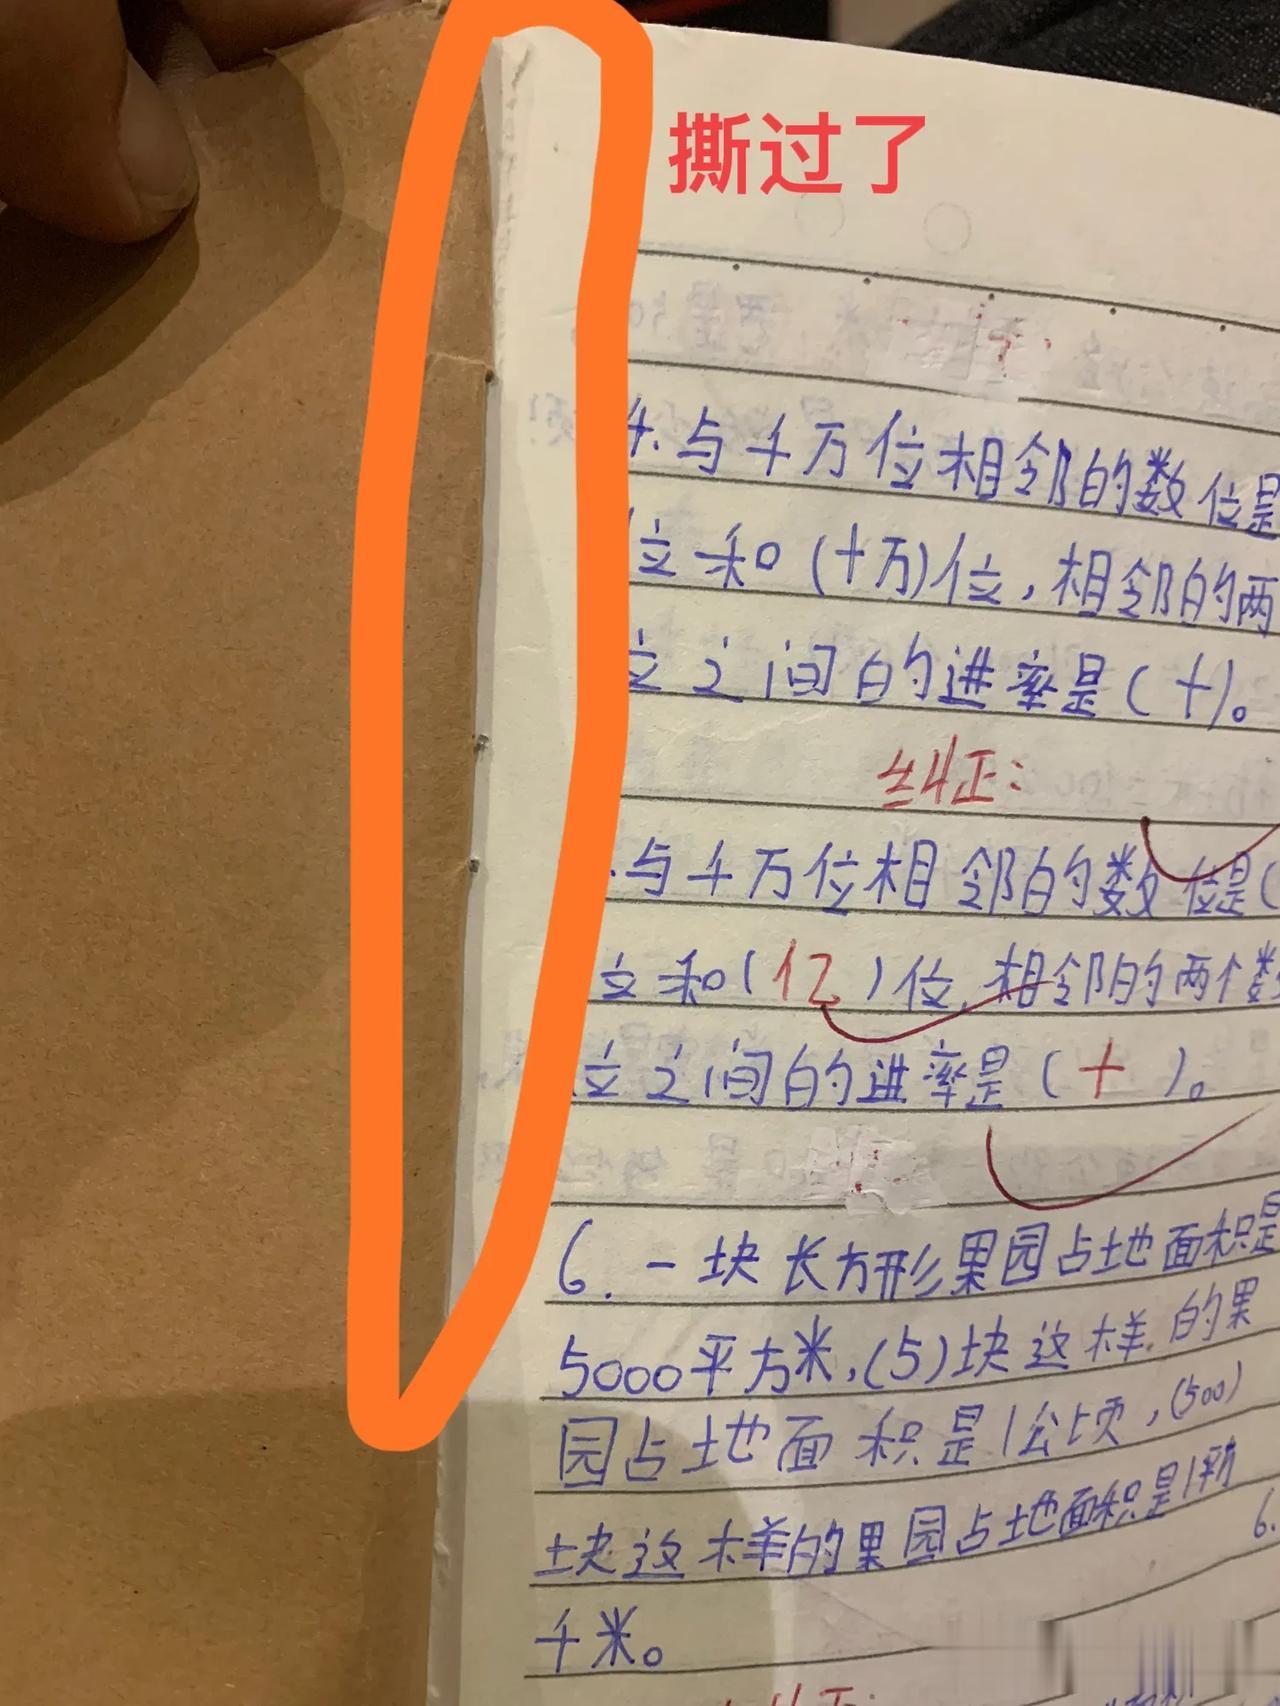 撕过了
4.与千万位相邻的数位是
位和(十万)位,相邻的两
位之间的进率是(十)。
纠正:
.与千万位相邻的数位是(
位和(亿)位,相邻的两个数
位之间的进率是(十)。
6.一块长方形果园占地面积是
5000平方米,(5)块这样的果
园占地面积是1公顷,(500)
块这样的果园占地面积是1平方
6.
千米。
纠正: